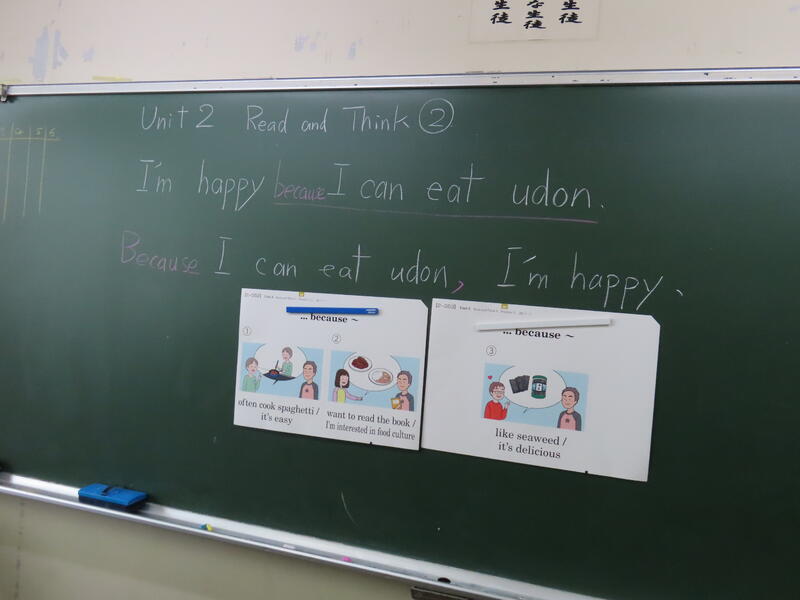 生徒 な生徒 生徒
5 6
Unit 2 Read and Think ②
I'm happy because I can eat udon.
Because I can eat udon, I'm happy、
... because ~
① ②
often cook spaghetti /
it's easy
want to read the book /
I'm interested in food culture
... because ~
③
like seaweed /
it's delicious